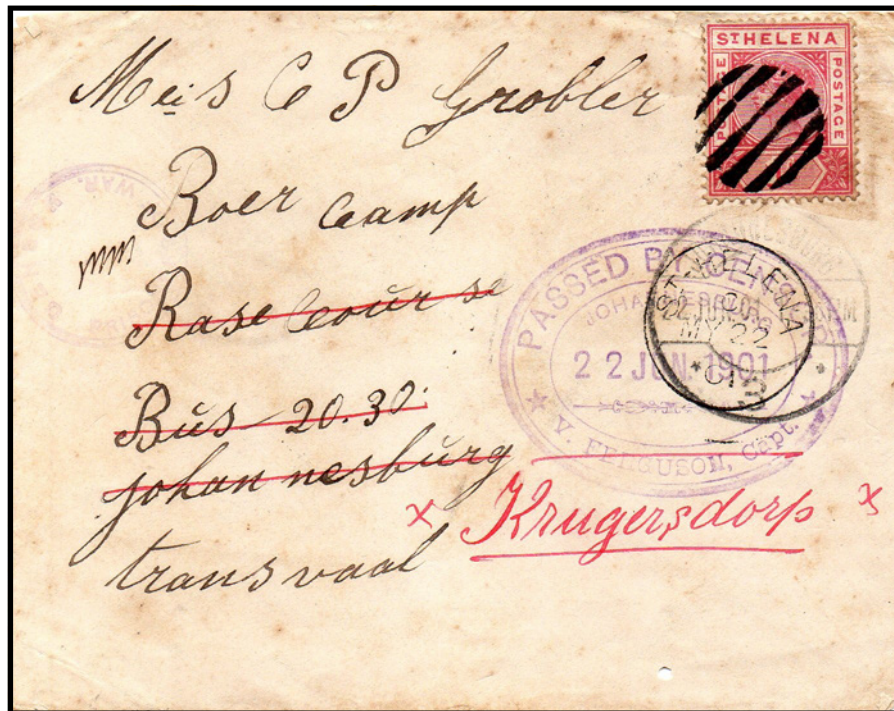 ST HELENA
POSTAGE
POSTAGE
Meis C P Grobler
Boer Camp
Rase Course
Bus 20.30.
Johannesburg
transvaal
x Krugersdorp x
PASSED BY CENSOR
JOHANNESBURG
22 JUN. 1901
V. FERGUSON, Capt.
ST. HELENA
MY 22
01
WAR.